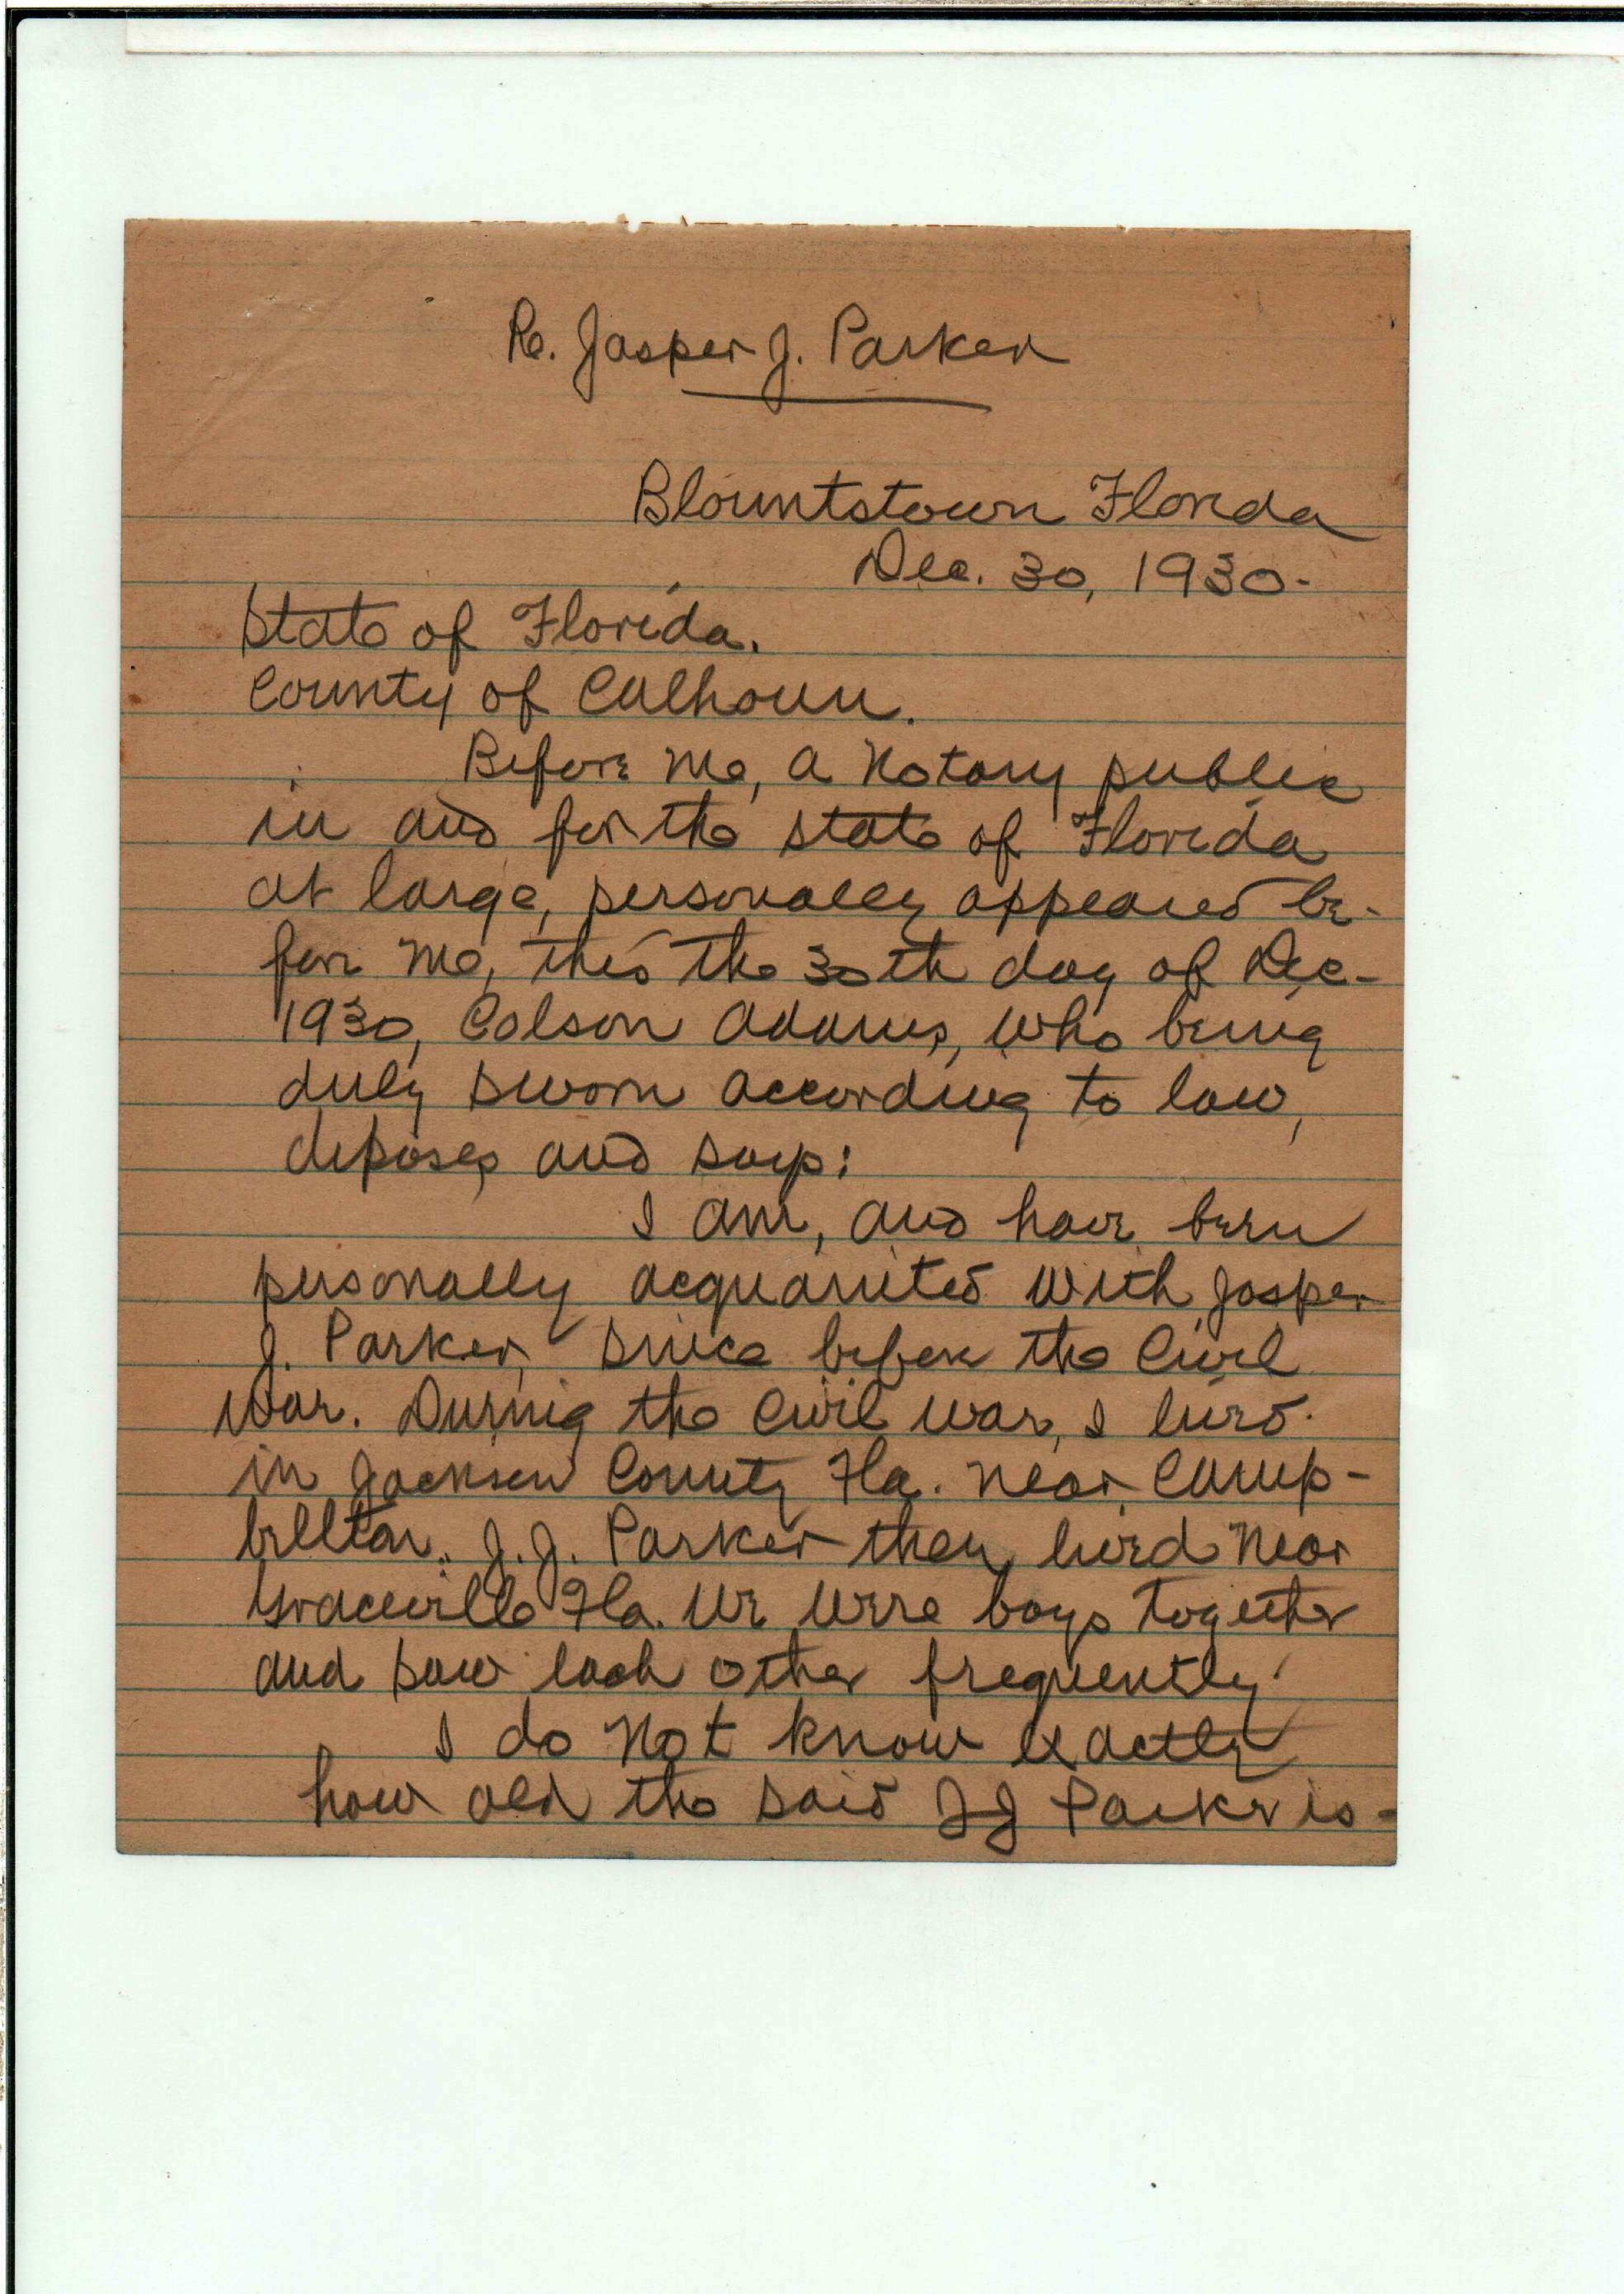 Re. Jasper J. Parker
Blountstown Florida
Dec. 30, 1930-
State of Florida.
County of Calhoun.
Before me, a Notary public
in and for the state of Florida
at large, personally appeared be-
fore me, this the 30th day of Dec-
1930, Colson Adams, who being
duly sworn according to law,
deposes and says:
I am, and have been
personally acquainted with Jasper
J. Parker, since before the Civil
War. During the Civil war, I lived
in Jackson County Fla. near Camp-
bellton. J.J. Parker then lived near
Graceville Fla. We were boys together
and saw each other frequently.
I do not know exactly
how old the said JJ Parker is-